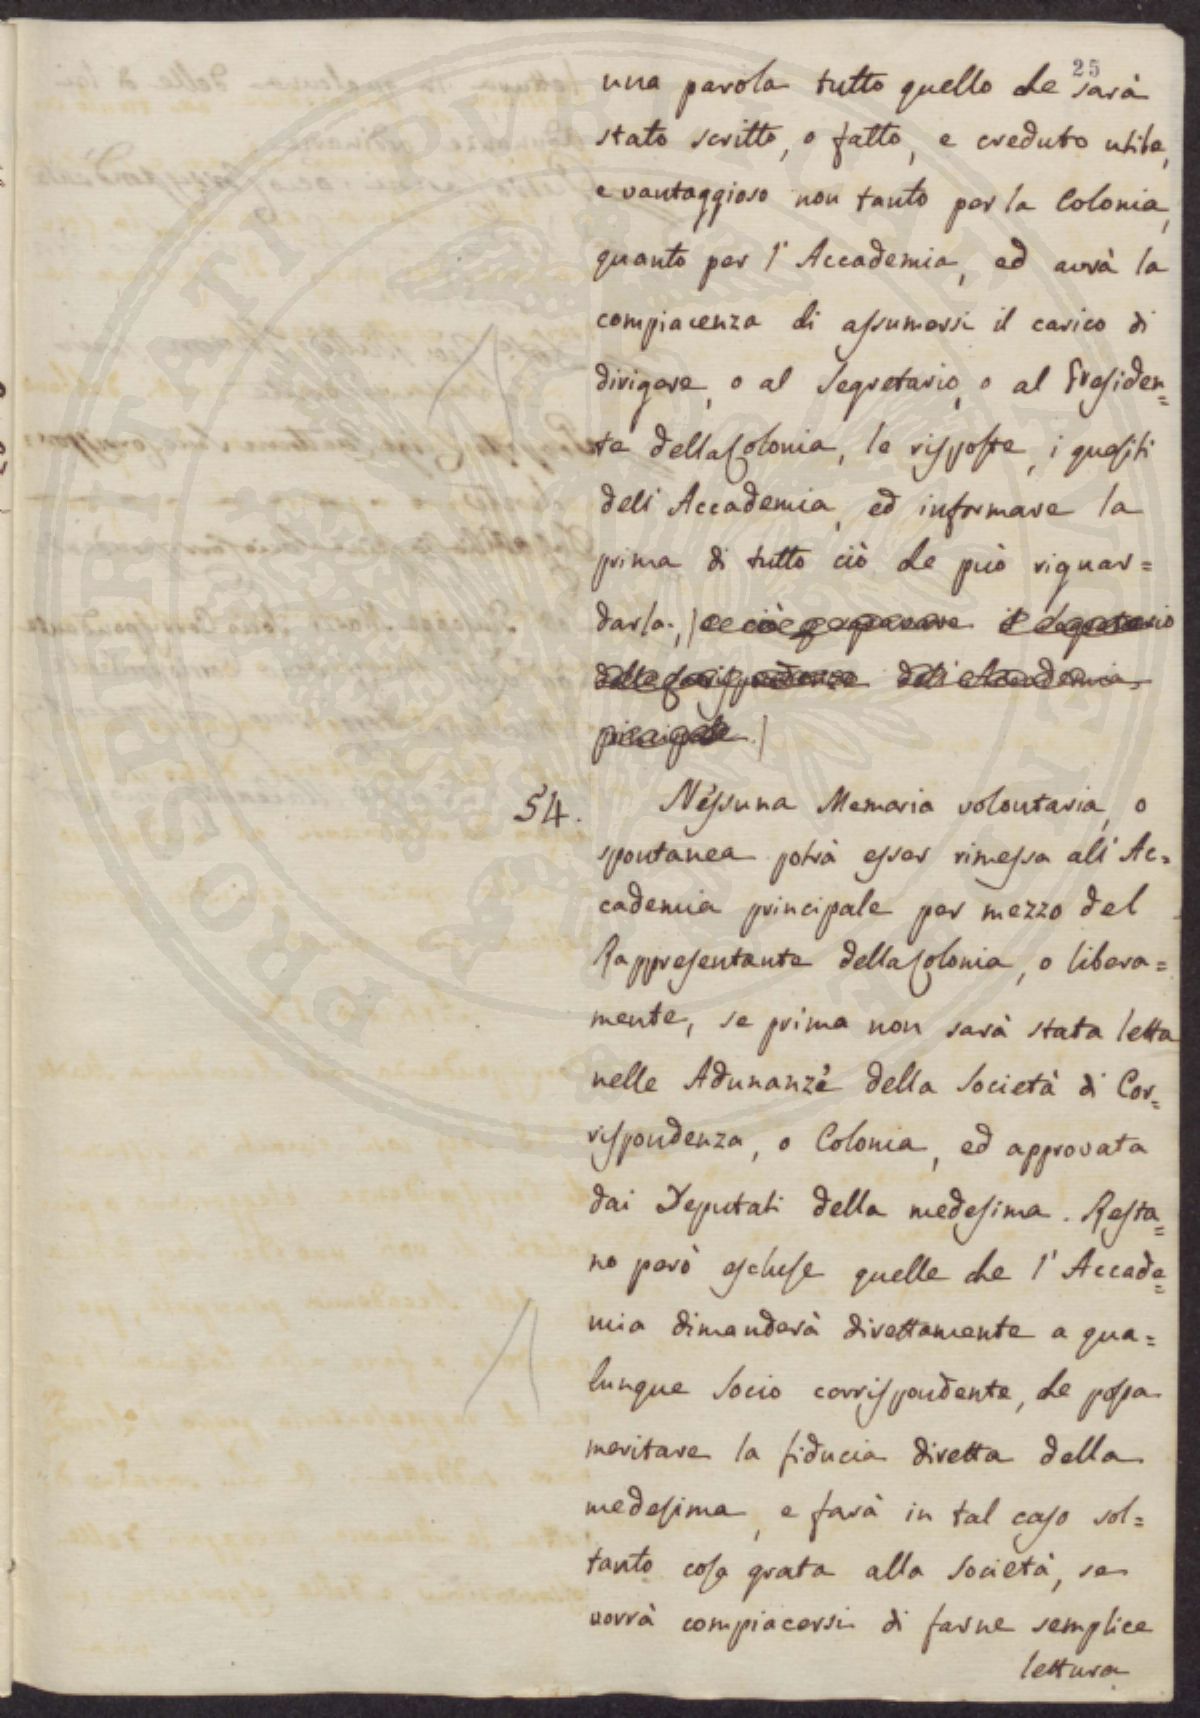 25
una parola tutto quello che sarà
stato scritto, o fatto, e creduto utile,
e vantaggioso non tanto per la Colonia,
quanto per l'Accademia, ed avrà la
compiacenza di assumersi il carico di
dirigere, o al Segretario, o al Presiden=
te della Colonia, le risposte, i quesiti
dell'Accademia, ed informare la
prima di tutto ciò che può riguar=
darla.
dell'Accademia
54. Nessuna Memoria volontaria, o
spontanea potrà esser rimessa all'Ac=
cademia principale per mezzo del
Rappresentante della Colonia, o libera=
mente, se prima non sarà stata letta
nelle Adunanze della Società di Cor=
rispondenza, o Colonia, ed approvata
dai Deputati della medesima. Resta=
no però escluse quelle che l'Accade=
mia dimanderà direttamente a qua=
lunque Socio corrispondente, che possa
meritare la fiducia diretta della
medesima, e farà in tal caso sol=
tanto cosa grata alla Società, se
vorrà compiacersi di farne semplice
lettura